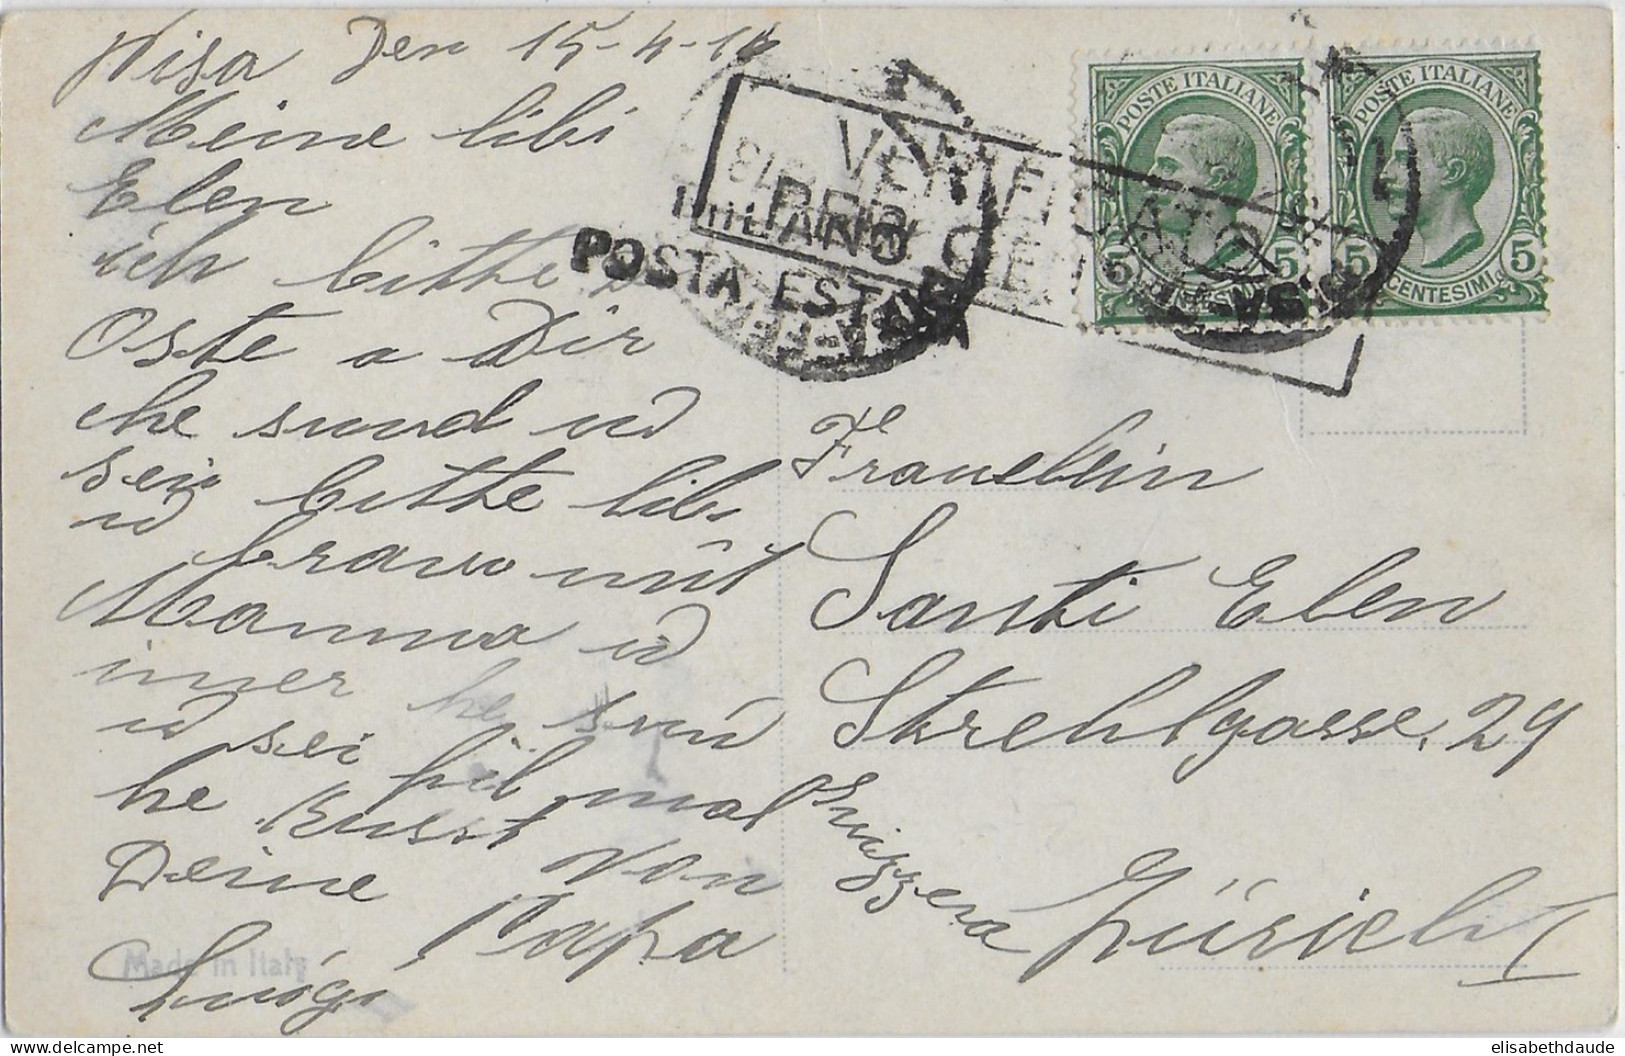 Pisa Den 15-4-18
Meine libi
Elen
ich bitte
Oste a Dir
che sund ud
sei bitte libi
ud bravo mit
Mamma ud
imer he sund
ud sei fil mal
he Kusst von
Deine Papa
Luigi
VERIFICATO PER CENSURA
MILANO
POSTA ESTERA
POSTE ITALIANE
5 CENTESIMI 5
POSTE ITALIANE
5 CENTESIMI 5
Frauelein
Santi Elen
Strehlgasse. 29
Svizzera Zürich I
Made in Italy
elisabethdaude